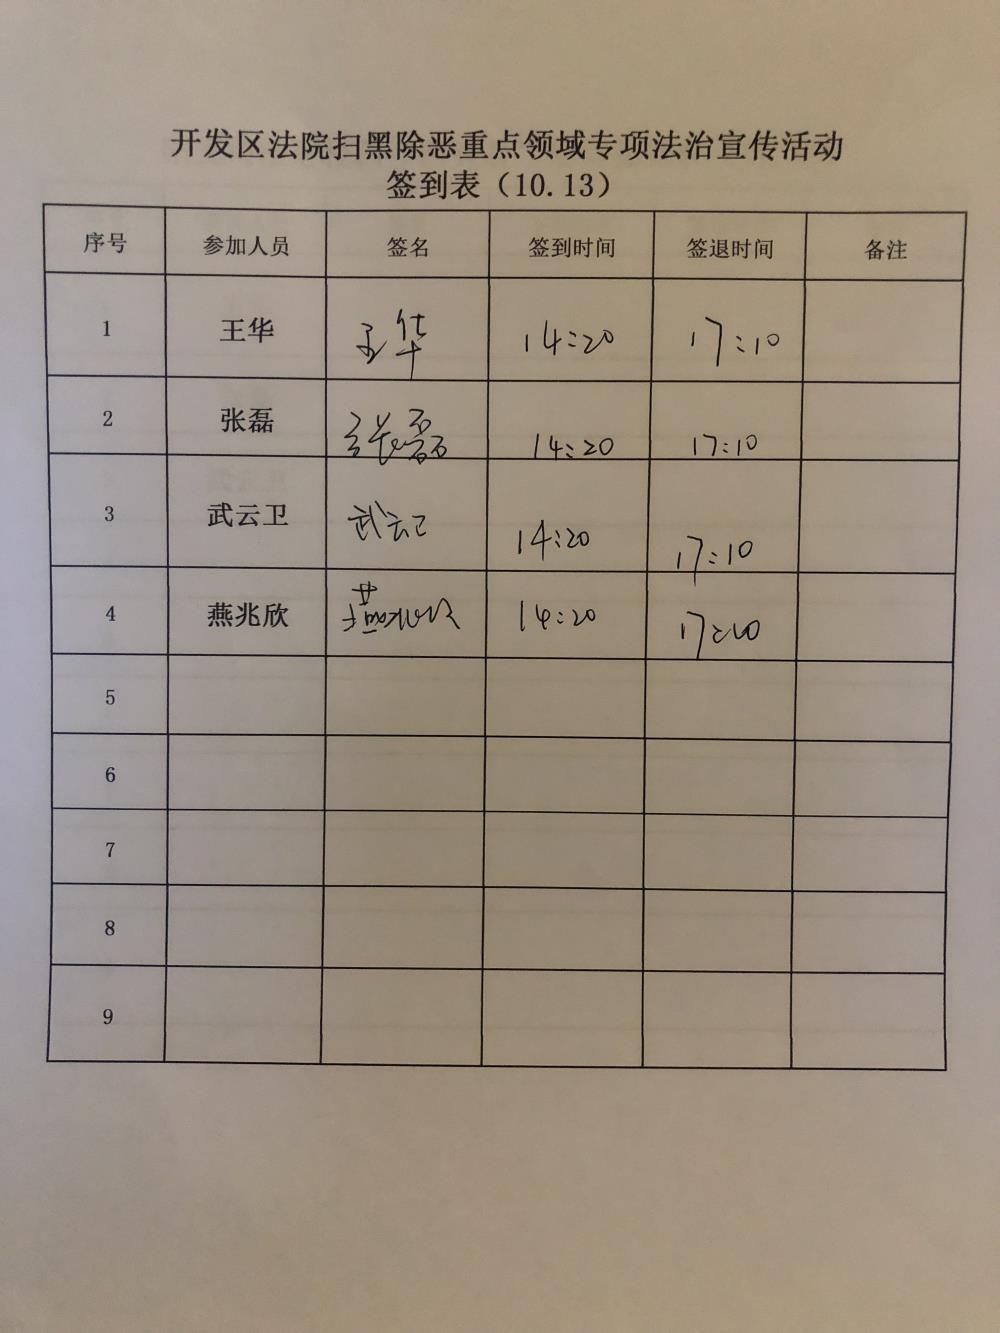 开发区法院扫黑除恶重点领域专项法治宣传活动
签到表（10.13）
序号 参加人员 签名 签到时间 签退时间 备注
1 王华 王华 14:20 17:10
2 张磊 张磊 14:20 17:10
3 武云卫 武云卫 14:20 17:10
4 燕兆欣 燕兆欣 14:20 17:10
5
6
7
8
9